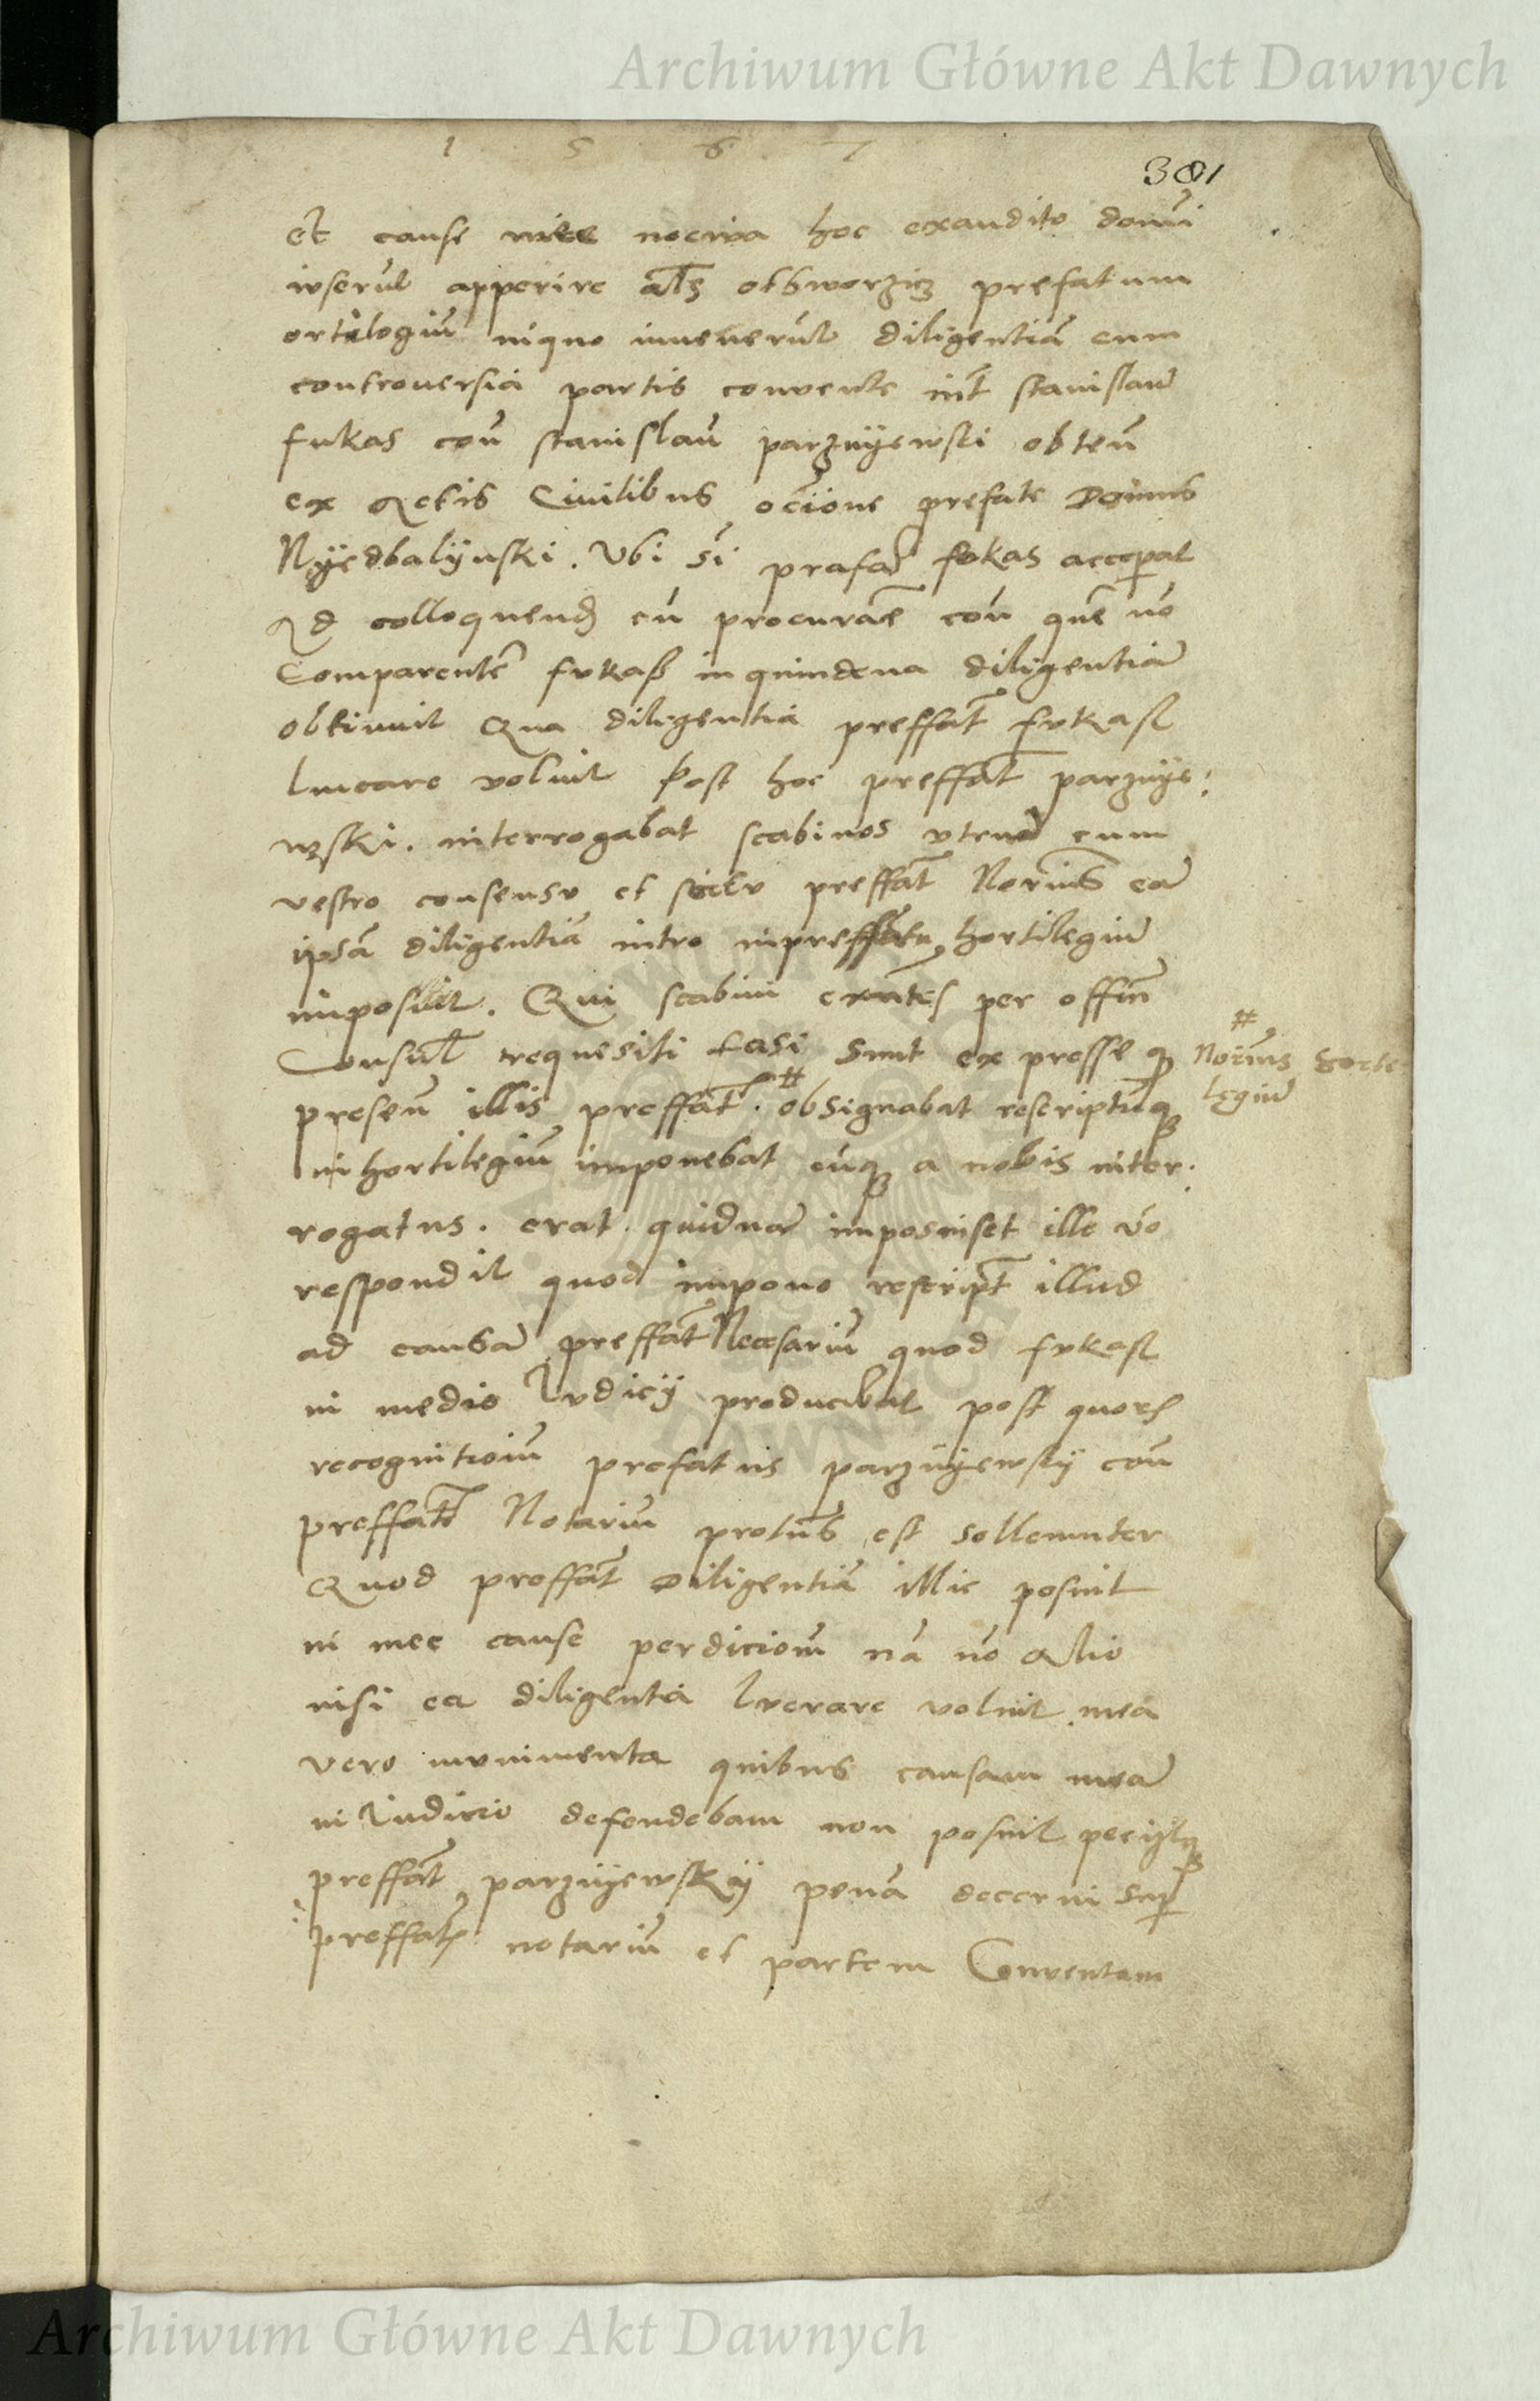 Archiwum Główne Akt Dawnych
1 5 6 7
381
et cause mee nociva hoc exaudito domi
iuserut apperire als othworzicz prefatum
ortilogiu inquo invenerut diligentia cum
controversia partis convente int stanislau
fukas con stanislau parznyewski obten
ex Actis Civilibus occione prefate Domus
Nyedbalynski. Vbi si prafa fukas acceperat
Ad colloquend cu procurare con que no
Comparente fukass in quindena diligentia
obtinuit Qua diligentia preffat fukass
lucrare voluit Post hoc preffat parznye:
wski. interrogabat scabinos utrum cum
vestro consensu et scitu preffat Norius ea
ipsa diligentia intro in preffatu hortilegiu
imposuit. Qui scabini exntes per offin
Consul requesiti fasi sunt ex presse q
# Norius horte
legiu
presen illis preffat. # obsignabat rescriptuq
in hortilegiu imponebat cuq a nobis inter.
rogatus. erat. quidna imposuiset ille vo
respondit quod impono rescript illud
ad causa preffat Necesariu quod fukass
in medio Iudicy producebat post quors
recognitioiu prefatus parznyewsky con
preffat Notariu protus est sollemniter
Quod preffat diligentia illic posuit
in mee cause perdicioni na no Alio
nisi ea diligentia lucrare voluit mea
vero munimenta quibus causam mea
in Iudicio defendebam non posuit pecytq
preffat parznyewsky pena decerni sup
preffat notariu et partem Conventam
Archiwum Główne Akt Dawnych